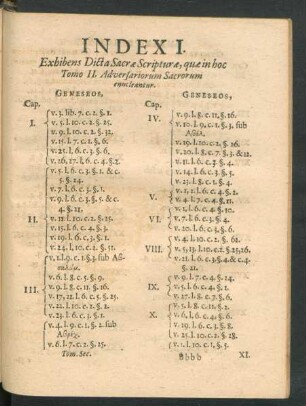 INDEX I.
Exhibens Dicta Sacræ Scripturæ, quæ in hoc
Tomo II. Adversariorum Sacrorum
enucleantur.
GENESEOS,
Cap.
I.
v. 3. lib. 7. c. 2. §. 1.
v. 5. l. 10. c. 2. §. 25.
v. 9. l. 10. c. 1. §. 32.
v. 15. l. 7. c. 2. §. 6.
v. 25. l. 6. c. 3. §. 6.
v. 26, 27. l. 6. c. 4. §. 2.
v. 1. l. 6. c. 3. §. 1. & c.
5. §. 14.
v. 7. l. 6. c. 3. §. 1.
v. 9. l. 6. c. 3. §. 5. & c.
4. §. 11.
II.
v. 11. l. 10. c. 2. §. 25.
v. 15. l. 6. c. 3. §. 1.
v. 19. l. 6. c. 3. §. 1.
v. 24. l. 10. c. 1. §. 51.
v. 1. l. 9. c. 1. §. 3. sub
v. 6. l. 8. c. 3. §. 9.
III.
v. 9. l. 8. c. 11. §. 16.
v. 17, 22. l. 6. c. 3. §. 6.
v. 22. l. 10. c. 1. §. 2.
v. 23. l. 6. c. 3. §. 1.
v. 4. l. 9. c. 1. §. 2. sub
v. 6. l. 7. c. 2. §. 15.
Tom. Sec.
GENESEOS,
Cap.
IV.
v. 9. l. 8. c. 11. §. 16.
v. 10. l. 9. c. 1. §. 3. sub
v. 19. l. 10. c. 2. §. 16.
v. 20. l. 8. c. 7. §. 3. & 12.
v. 11. l. 6. c. 3. §. 4.
v. 14. l. 6. c. 3. §. 1.
v. 23. l. 8. c. 4. §. 1.
v. 1, 2. l. 6. c. 4. §. 1.
V.
v. 4. l. 7. c. 4. §. 11.
v. 1. l. 6. c. 3. §. 1.
VI.
v. 7. l. 6. c. 3. §. 1.
v. 4. l. 10. c. 2. §. 61.
VIII.
v. 5. l. 10. c. 1. §. 25, 26.
v. 21. l. 6. c. 4. & c. 4.
§. 21.
v. 9. l. 7. c. 4. §. 14.
IX.
v. 5. l. 6. c. 4. §. 1.
v. 27. l. 8. c. 7. §. 6.
v. 2. l. 6. c. 3. §. 1.
X.
v. 6. l. 6. c. 4. §. 1.
v. 19. l. 6. c. 3. §. 8.
v. 25. l. 10. c. 1. §. 18.
v. 1. l. 10. c. 1. §. 5.
Bbbb
XI.